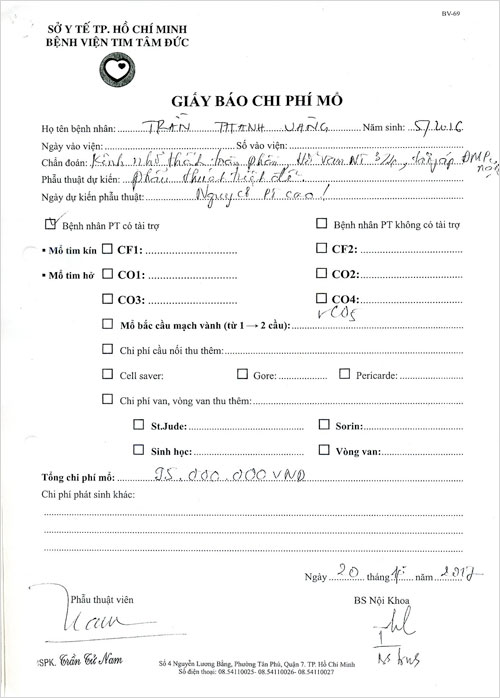 BV-69
SỞ Y TẾ TP. HỒ CHÍ MINH
BỆNH VIỆN TIM TÂM ĐỨC
GIẤY BÁO CHI PHÍ MỔ
Họ tên bệnh nhân: TRẦN THANH Năm sinh: 5/2016
Ngày vào viện: Số vào viện:
Chẩn đoán: Kênh nhĩ thất toàn phần, Hở van NT 3/4, tăng áp ĐMP
Phẫu thuật dự kiến: phẫu thuật triệt để
Ngày dự kiến phẫu thuật: Nguy cơ cao!
Bệnh nhân PT có tài trợ Bệnh nhân PT không có tài trợ
▪ Mổ tim kín CF1: CF2:
▪ Mổ tim hở CO1: CO2:
CO3: CO4:
CO5
Mổ bắc cầu mạch vành (từ 1 → 2 cầu):
Chi phí cầu nối thu thêm:
Cell saver: Gore: Pericarde:
Chi phí van, vòng van thu thêm:
St.Jude: Sorin:
Sinh học: Vòng van:
Tổng chi phí mổ: 95.000.000 VNĐ
Chi phí phát sinh khác:
Ngày 20 tháng năm 2017
Phẫu thuật viên BS Nội Khoa
BSPK. Trần Tử Nam
Số 4 Nguyễn Lương Bằng, Phường Tân Phú, Quận 7. TP. Hồ Chí Minh
Số điện thoại: 08.54110025 - 08.54110026 - 08.54110027